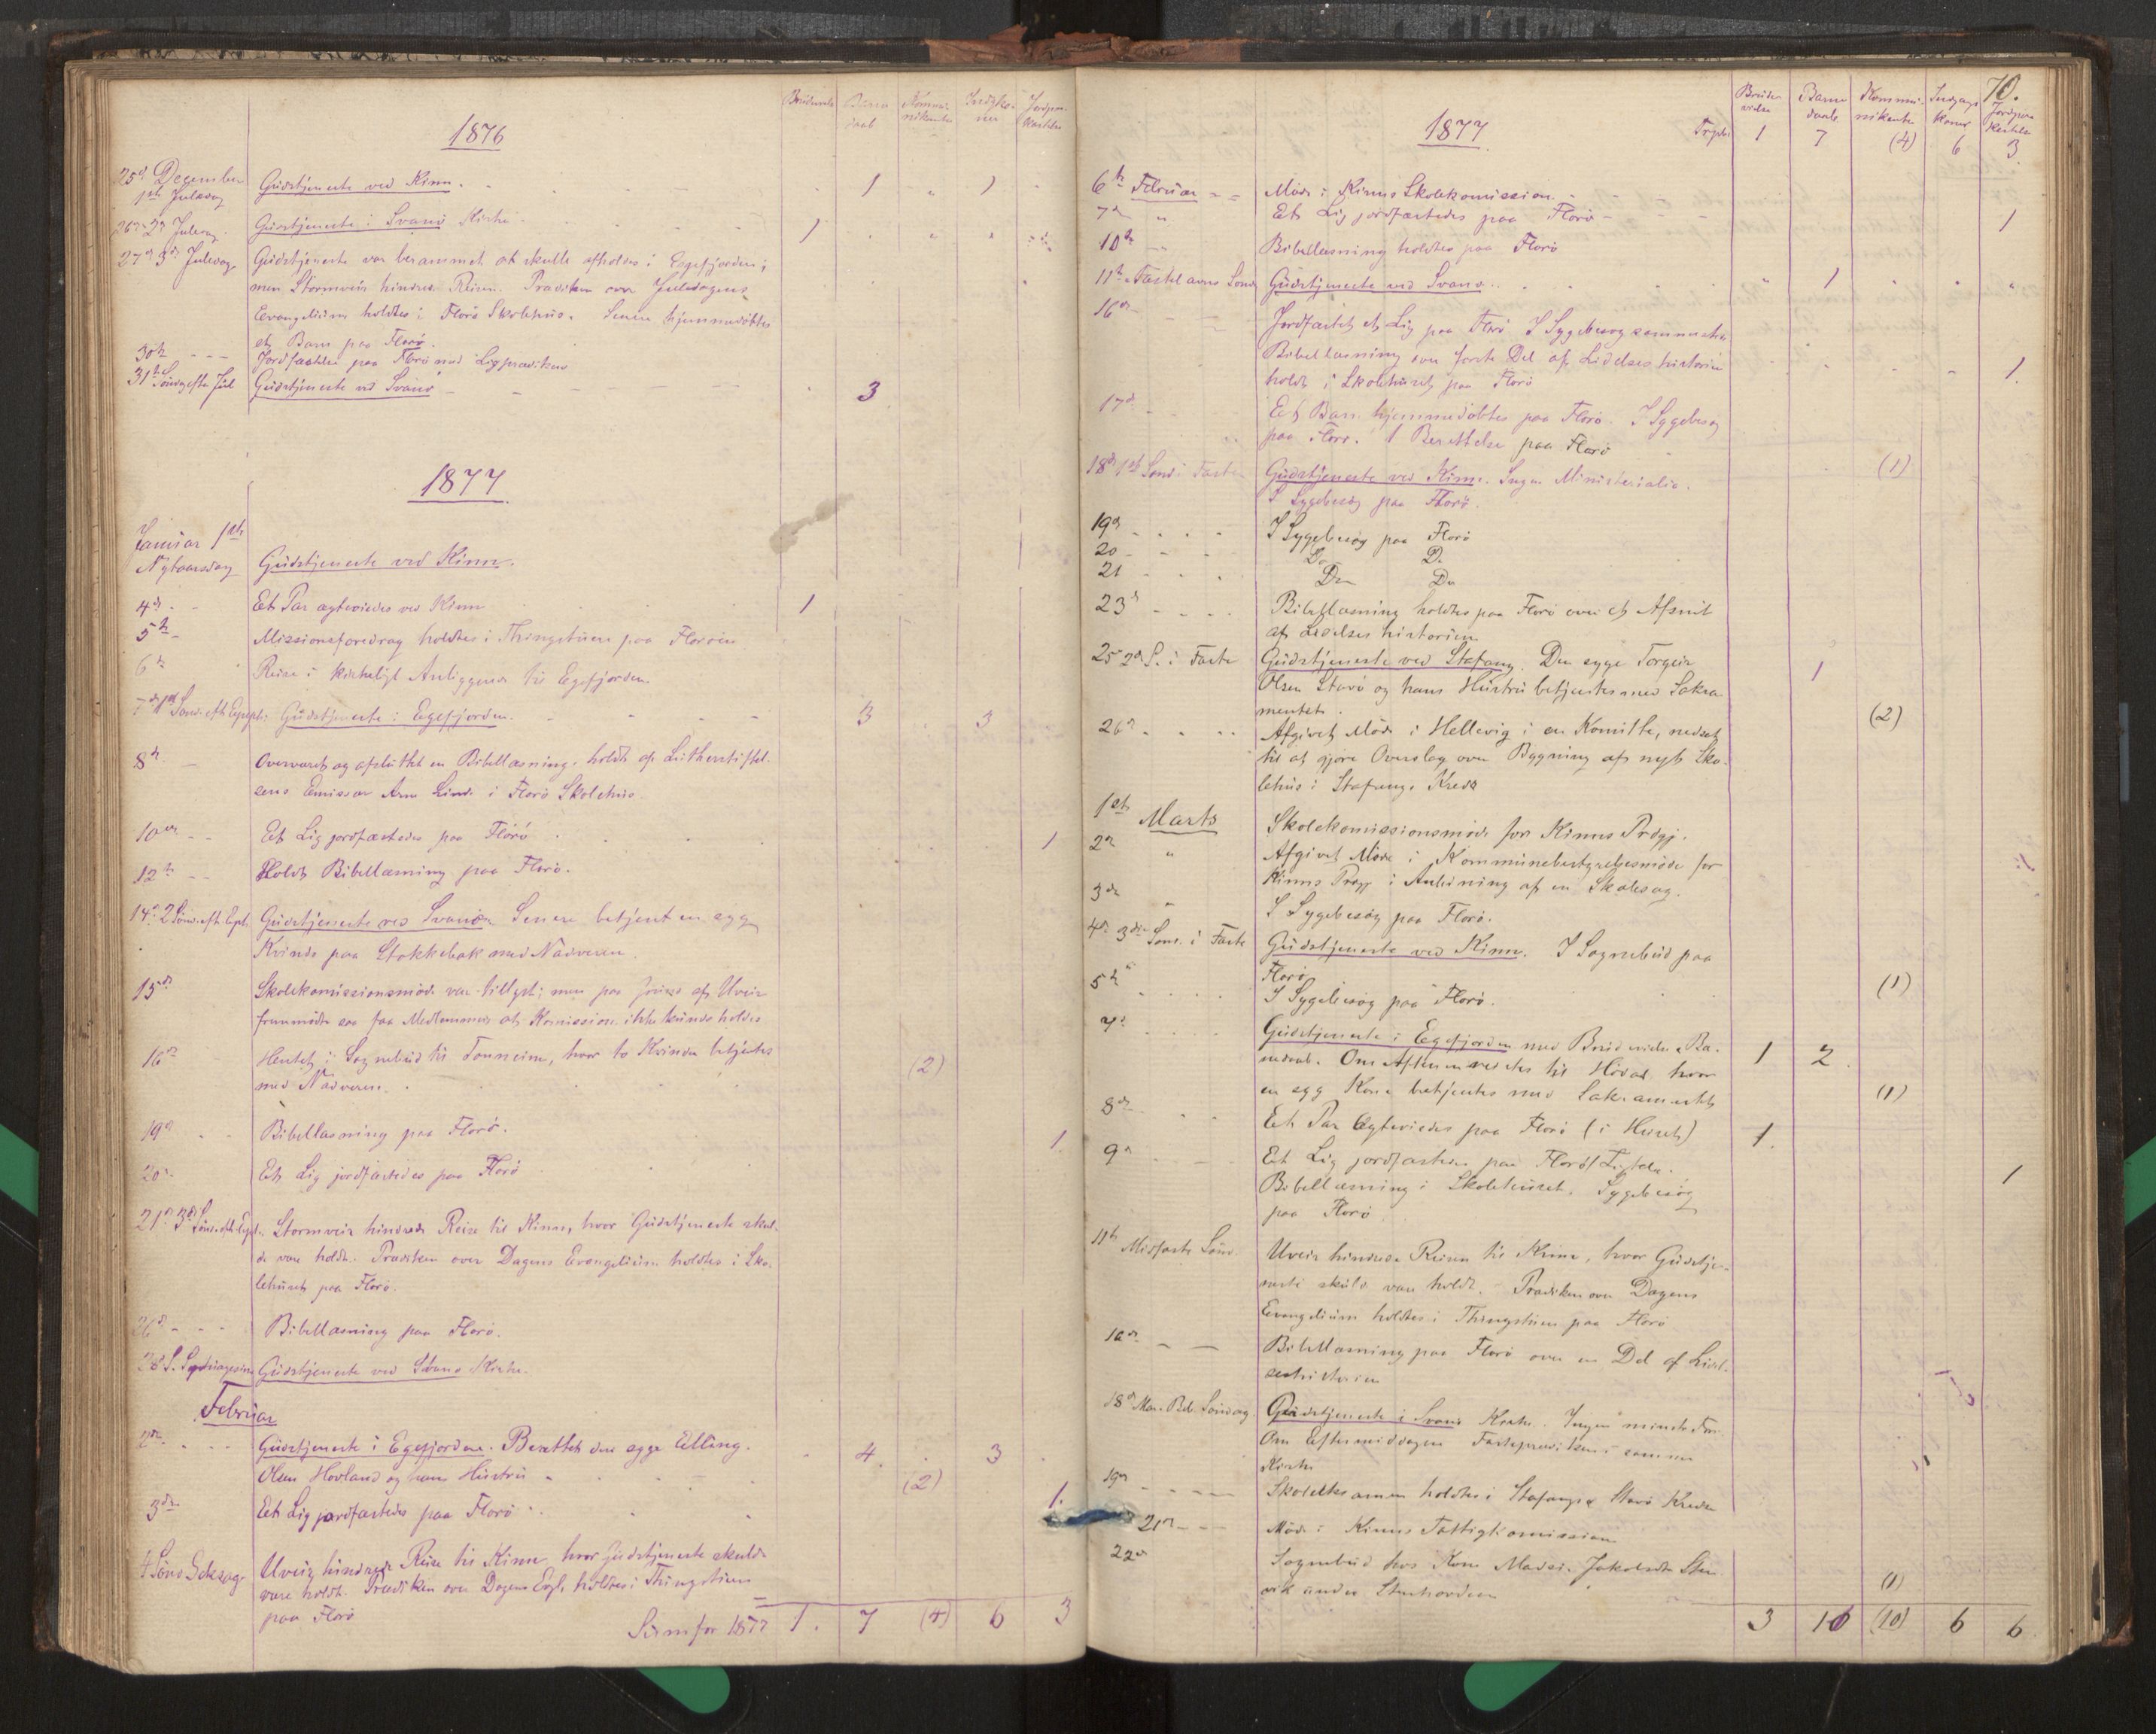 Brüdevielse Barne daab Kommunikanter Indgkoner Jordpaa kastelse
1876
25de December Gudstjeneste ved Kinn. 1 " 1
1ste Juledag
26de 2den Juledag. Gudstjeneste i Svanø Kirke. 1
27de 3die Juledag. Gudstjeneste var berammet at skulle afholdes i Egefjorden;
men Stormveir hindred Reisen. Prædiken over Juledagens
Evangelium holdtes i Florø Skolehus. Senere hjemmedøbtes
et Barn paa Florø.
30te - - - Jordfæstelse paa Florø med Ligprædiken
31te Søndag efter Jul Gudstjeneste ved Svanø 3
1877
Januar 1ste
Nytaarsdag Gudstjeneste ved Kinn.
4de - Et Par ægteviedes ved Kinn 1
5te - Missionsforedrag holdtes i Thingstuen paa Florøen
6te Reise i kirkeligt Anliggende til Egefjorden
7de 1ste Sønd. efter Epiph. Gudstjeneste i Egefjorden. 3 3
8de - Overværet og afsluttet en Bibellæsning, holdt af Lutherstiftel-
sens Emissær Arne Linde i Florø Skolehus.
10de - - Et Lig jordfæstedes paa Florø 1
12te - - Holdt Bibellæsning paa Florø.
14de 2 Sønd. efter Epiph. Gudstjeneste ved Svanøen Senere betjent en syg
Kvinde paa Stokkebak med Nadveren.
15de Skolekomissionsmøde var tillyst; men paa Grund af Uveir
fremmødte saa faa Medlemmer at Komission ikke kunde holdes
16de Hentet i Sognebud til Tonneim, hvor to Kvinder betjentes (2)
med Nadveren.
19de Bibellæsning paa Florø.
20de Et Lig jordfæstedes paa Florø 1.
21de 3die Sønd. efter Epiph. Stormveir hindrede Reise til Kinn, hvor Gudstjeneste skul-
de være holdt. Prædiken over Dagens Evangelium holdtes i Sko-
lehuset paa Florø.
26de - - - Bibellæsning paa Florø.
28 S. Septuagesima Gudstjeneste ved Svanø Kirke.
Februar
2den - - - Gudstjeneste i Egefjorden. Berettet den syge Elling 4 3
Olsen Hovland og hans Hustru (2)
3die Et Lig jordfæstedes paa Florø 1.
4 Sønd. Seksag. Uveir hindrede Reise til Kinn, hvor Gudstjeneste skulde
være holdt. Prædiken over Dagens Evgl. holdtes i Thingstuen
paa Florø Sum for 1877 1. 7 (4) 6 3
70.
Brude vielse Barne daab Kommunikanter Indgangs koner Jordpaa kastelse
1877. 1 7 (4) 6 3.
6te Februar - - Møde i Kinns Skolekomission.
7de " Et Lig jordfæstedes paa Florø 1
10de - Bibellæsning holdtes paa Florø
11te Fastelavns Sønd Gudstjeneste ved Svanø. " 1 " " "
16de Jordfæstet et Lig paa Florø I Sygebesøg sammesteds
Bibellæsning over første Del af Lidelseshistorien
holdt i Skolehuset paa Florø 1.
17de Et Barn hjemmedøbtes paa Florø. I Sygebesøg
paa Florø. 1 Berettelse paa Florø
18de 1ste Sønd i Fasten Gudstjeneste ved Kinn. Ingen Ministerialia. (1)
I Sygebesøg paa Florø.
19de - . . . I Sygebesøg paa Florø
20 - - - Do Do
21 - . . Do Do
23de - . . . Bibellæsning holdtes paa Florø over et Afsnit
af Lidelses historien
25 2den S. i Faste Gudstjeneste ved Stafang. Den syge Torgeir 1
Olsen Stavø og hans Hustru betjentes med Sakra-
mentet. (2)
26de . . . . Afgivet Møde i Hellevig i en Komitte, nedsat
til at gjøre Overslag over Bygning af nyt Sko-
lehus i Stafangs Kreds
1ste Marts Skolekomissionsmøde for Kinns Prgj.
2den " Afgivet Møde i Kommunebestyrelsesmøde for
Kinns Prgj i Anledning af en Skolesag.
3die " I Sygebesøg paa Florø.
4de 3die Sønd. i Faste Gudstjeneste ved Kinn. I Sognebud paa
Florø (1)
5te " I Sygebesøg paa Florø.
7de Gudstjeneste i Egefjorden med Brudevielse & Bar- 1 2
nedaab. Om Aftenen reistes til Hovad hvor
en syg Kone betjentes med Sakramentet (1)
8de Et Par ægteviedes paa Florø (i Huset) 1.
9de Et Lig jordfæstedes paa Florø 1
Bibellæsning i Skolehuset. Sygebesøg
paa Florø
11te Midfaste Sønd. Uveir hindrede Reisen til Kinn, hvor Gudstje-
neste skulde være holdt. - Prædiken over Dagens
Evangelium holdtes i Thingstuen paa Florø
16de - - Bibellæsning paa Florø over en Del af Lidel-
seshistorien
18de Mar. Beb. Søndag Gudstjeneste i Svanø Kirke. Ingen
Om Eftermiddagen Fasteprædiken i samme
Kirke
19de - - - - Skoleeksamen holdtes i Stafangs & Stavø Kredse
21de - - - Møde i Kinns Fattigkomission
22de Sognebud hos Kone Jakobsdtr Sten-
vik under (1)
3 10 (10) 6 6